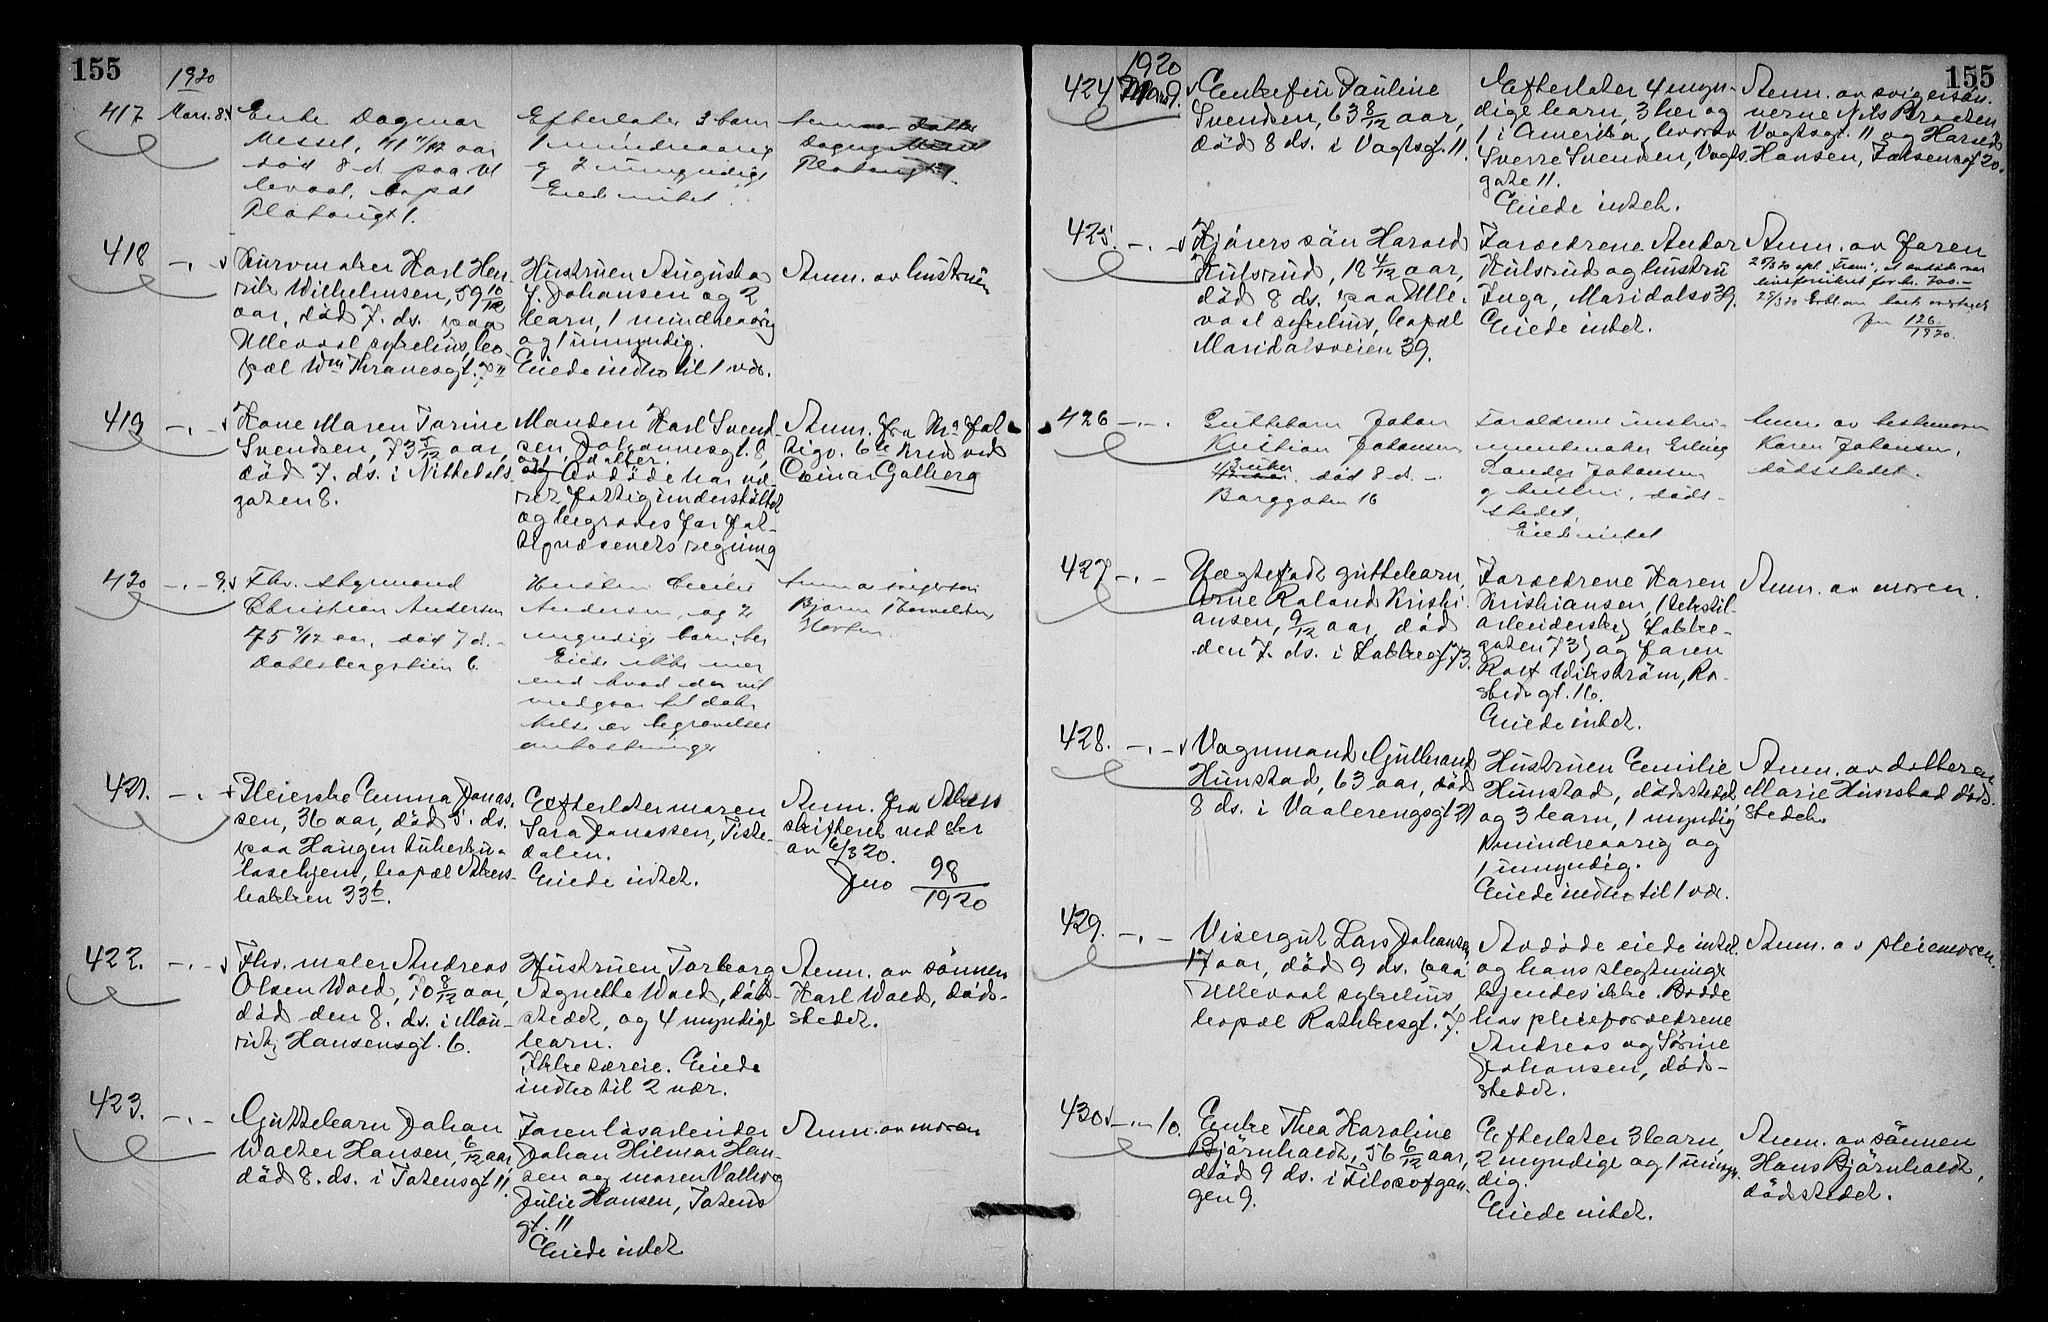 155
1920
417 Mars 8.
Enke Dagmar
Messel, 41 11/12 aar
død 8 d. paa Ul
levaal, bopæl
Platousgt 1.
Efterlater 3 barn
1 mindreaarig
g 2 umyndige
Eied intet
datter
Platousgt 1.
418 -"-
Kurvmaker Karl Hen
rik Wilhelmsen, 59 10/12
aar, død 7. ds. paa
Ullevaal sykehus, bo
pæl Wm Thranesgt. 7 II
Hustruen Augusta
f. Johansen og 2
barn, 1 mindreaarig
og 1 umyndig.
Eiede indbo til 1 vær.
Anm. av hustruen
419 -"-
Kone Maren Torine
Svendsen, 73 5/12 aar,
død 7. ds. i Nittedals
gaten 8.
Manden Karl Svend
sen, Johannesgt. 8,
og datter.
Avdøde har væ
ret fattigunderstøttet
og begraves for fat-
tigvæsenets regning
Anm. fra Kra fat
tigv. 6te kred ved
Osmar Galberg
420 -"- 9.
Fhv. styrmand
Christian Andersen
75 9/12 aar, død 7 d.
Dahlsbergstien 6
Hustru Cecilie
Andersen og 2
myndige barn, her
Eiede ikke mer
end hvad der vil
medgaa til dæk
kelse av begravelses
omkostninger
Anm. a svigersøn
Bjarne Thorvaldsen,
Horten
421. -"-
Pleierske Emma Jonas
sen, 36 aar, død 5. ds.
paa Haugen tuberku-
losehjem, bopæl Akers-
bakken 33b.
Efterlater moren
Sara Jonassen, Tiste
dalen.
Eiede intet.
Anm. fra Akers
skifteret ved skr
av 6/3 20.
Jno 98/1920
422. -"-
Fhv. maler Andreas
Olsen Wold, 70 8/12 aar,
død den 8. ds. i Mou-
ritz Hansensgt. 6.
Hustruen Torborg
Agnethe Wold, død-
stedet, og 4 myndige
barn.
Ikke særeie. Eiede
indbo til 2 vær.
Anm. av sønnen
Karl Wold, døds-
stedet.
423. -"-
Guttebarn Johan
Walter Hansen, 6/12 aar
død 8. ds. i Totensgt 11.
Faren løsarbeider
Johan Hilmar Han-
sen og moren Valborg
Julie Hansen, Totens
gt. 11
Eiede intet
Anm. av moren
155
1920
424 Mars 9.
Enkefru Pauline
Svendsen, 63 8/12 aar,
død 8 ds. i Vogtsgt. 11.
Efterlater 4 myn-
dige barn, 3 her og
1 i Amerika, hvorav
Sverre Svendsen, Vogts
gate 11.
Eiede intet.
Anm. av svigersøn-
nerne Nils Braaten
Vogtsgt. 11 og Harald
Hansen, Falsensgt 20.
425. -"-
Kjørers søn Harald
Hulsrud, 18 4/12 aar,
død 8 ds. paa Ulle-
vaal sykehus, bopæl
Maridalsveien 39.
Forældrene Andor
Hulsrud og hustru
Inga, Maridalsv 39.
Eiede intet.
Anm. av faren
25/3 20 opl. "Fram", at avdøde var
livsforsikret for kr. 700.-
jno 126/1920.
426 -"-
Guttebarn Johan
Kristian Johansen
3 uker, død 8 d.
Borggaten 16
Forældrene instru-
mentmaker Erling
Sander Johansen
og hustru, døds-
stedet.
Eied intet
Anm. av bestemoren
Karen Johansen,
dødsstedet.
427 -"-
Uægtefødt guttebarn
Arne Roland Kristi-
ansen, 9/12 aar, død
den 7. ds. i Lakkegt 73.
Forældrene Karen
Kristiansen, (tekstil-
arbeiderske) Lakke-
gaten 73, og faren
Rolf Wikstrøm, Ro-
stedsgt. 16.
Eiede intet.
Anm. av moren.
428. -"-
Vognmand Gulbrand
Hunstad, 63 aar, død
8 ds. i Vaalerengsgt 21
Hustruen Emilie
Hunstad, dødsstedet
og 3 barn, 1 myndig
1 mindreaarig og
1 umyndig.
Eiede indbo til 1 vær.
Anm. av datteren
Marie Hunstad døds-
stedet.
429. -"-
Visergut Lars Johansen
17 aar, død 9 ds. paa
Ullevaal sykehus,
bopæl Rathkesgt. 7.
Avdøde eiede intet
og hans slegtninge
kjendes ikke. Bodde
hos pleieforældrene
Andreas og Sørine
Johansen, døds-
stedet.
Anm. av pleiemoren.
430 -"- 10.
Enke Thea Karoline
Bjørnholdt, 56 6/12 aar,
død 9 ds. i Filosofgan-
gen 9.
Efterlater 3 barn,
2 myndige og 1 umyn-
dig.
Eiede intet.
Anm. av sønnen
Hans Bjørnholdt,
dødsstedet.